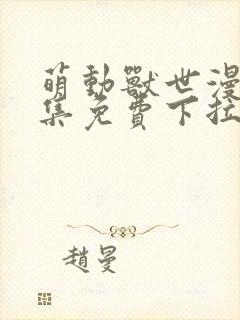 萌動獸世漫
集免費下拉
趙曼